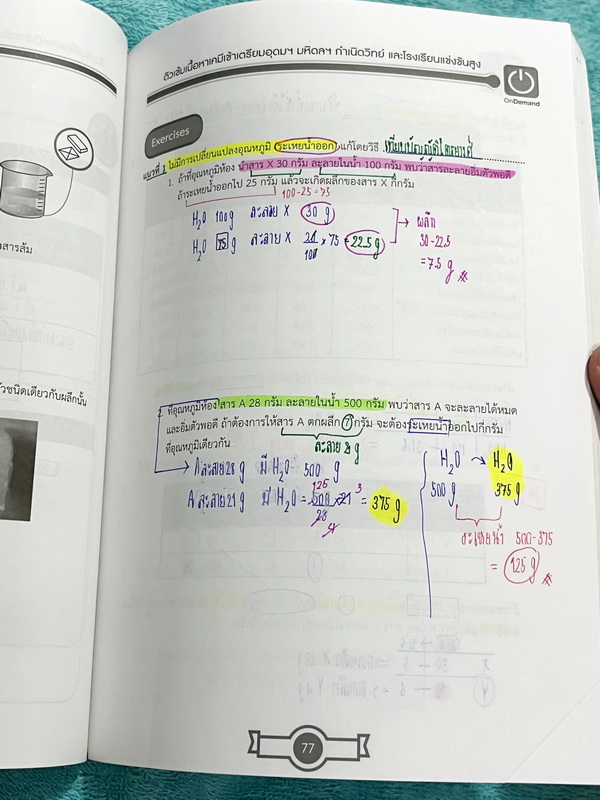 ติวเข้มเนื้อหาเคมีเข้าเตรียมอุดมฯ มหิดลฯ กำเนิดวิทย์ และโรงเรียนแข่งขันสูง
OnDemand
Exercises
แนวที่ 1 ไม่มีการเปลี่ยนแปลงอุณหภูมิ (ระเหยน้ำออก) แก้โดยวิธี เทียบบัญญัติไตรยางศ์
1. ถ้าที่อุณหภูมิห้อง นำสาร X 30 กรัม ละลายในน้ำ 100 กรัม พบว่าสารละลายอิ่มตัวพอดี
ถ้าระเหยน้ำออกไป 25 กรัม แล้วจะเกิดผลึกของสาร X กี่กรัม
100-25 = 75
H2O 100 g ละลาย X 30 g → ผลึก
H2O 75 g ละลาย X 30/100 × 75 = 22.5 g 30-22.5
= 7.5 g
2. ที่อุณหภูมิห้อง สาร A 28 กรัม ละลายในน้ำ 500 กรัม พบว่าสาร A จะละลายได้หมด
และอิ่มตัวพอดี ถ้าต้องการให้สาร A ตกผลึก 7 กรัม จะต้องระเหยน้ำออกไปกี่กรัม
ที่อุณหภูมิเดียวกัน
ละลาย 21 g
A ละลาย 28 g มี H2O 500 g
A ละลาย 21 g มี H2O = 500/28 × 21 = 375 g
125 3
4
H2O → H2O
500 g 375 g
ระเหยน้ำ 500-375
= 125 g
77
งสารส้ม
ัวชนิดเดียวกับผลึกนั้น